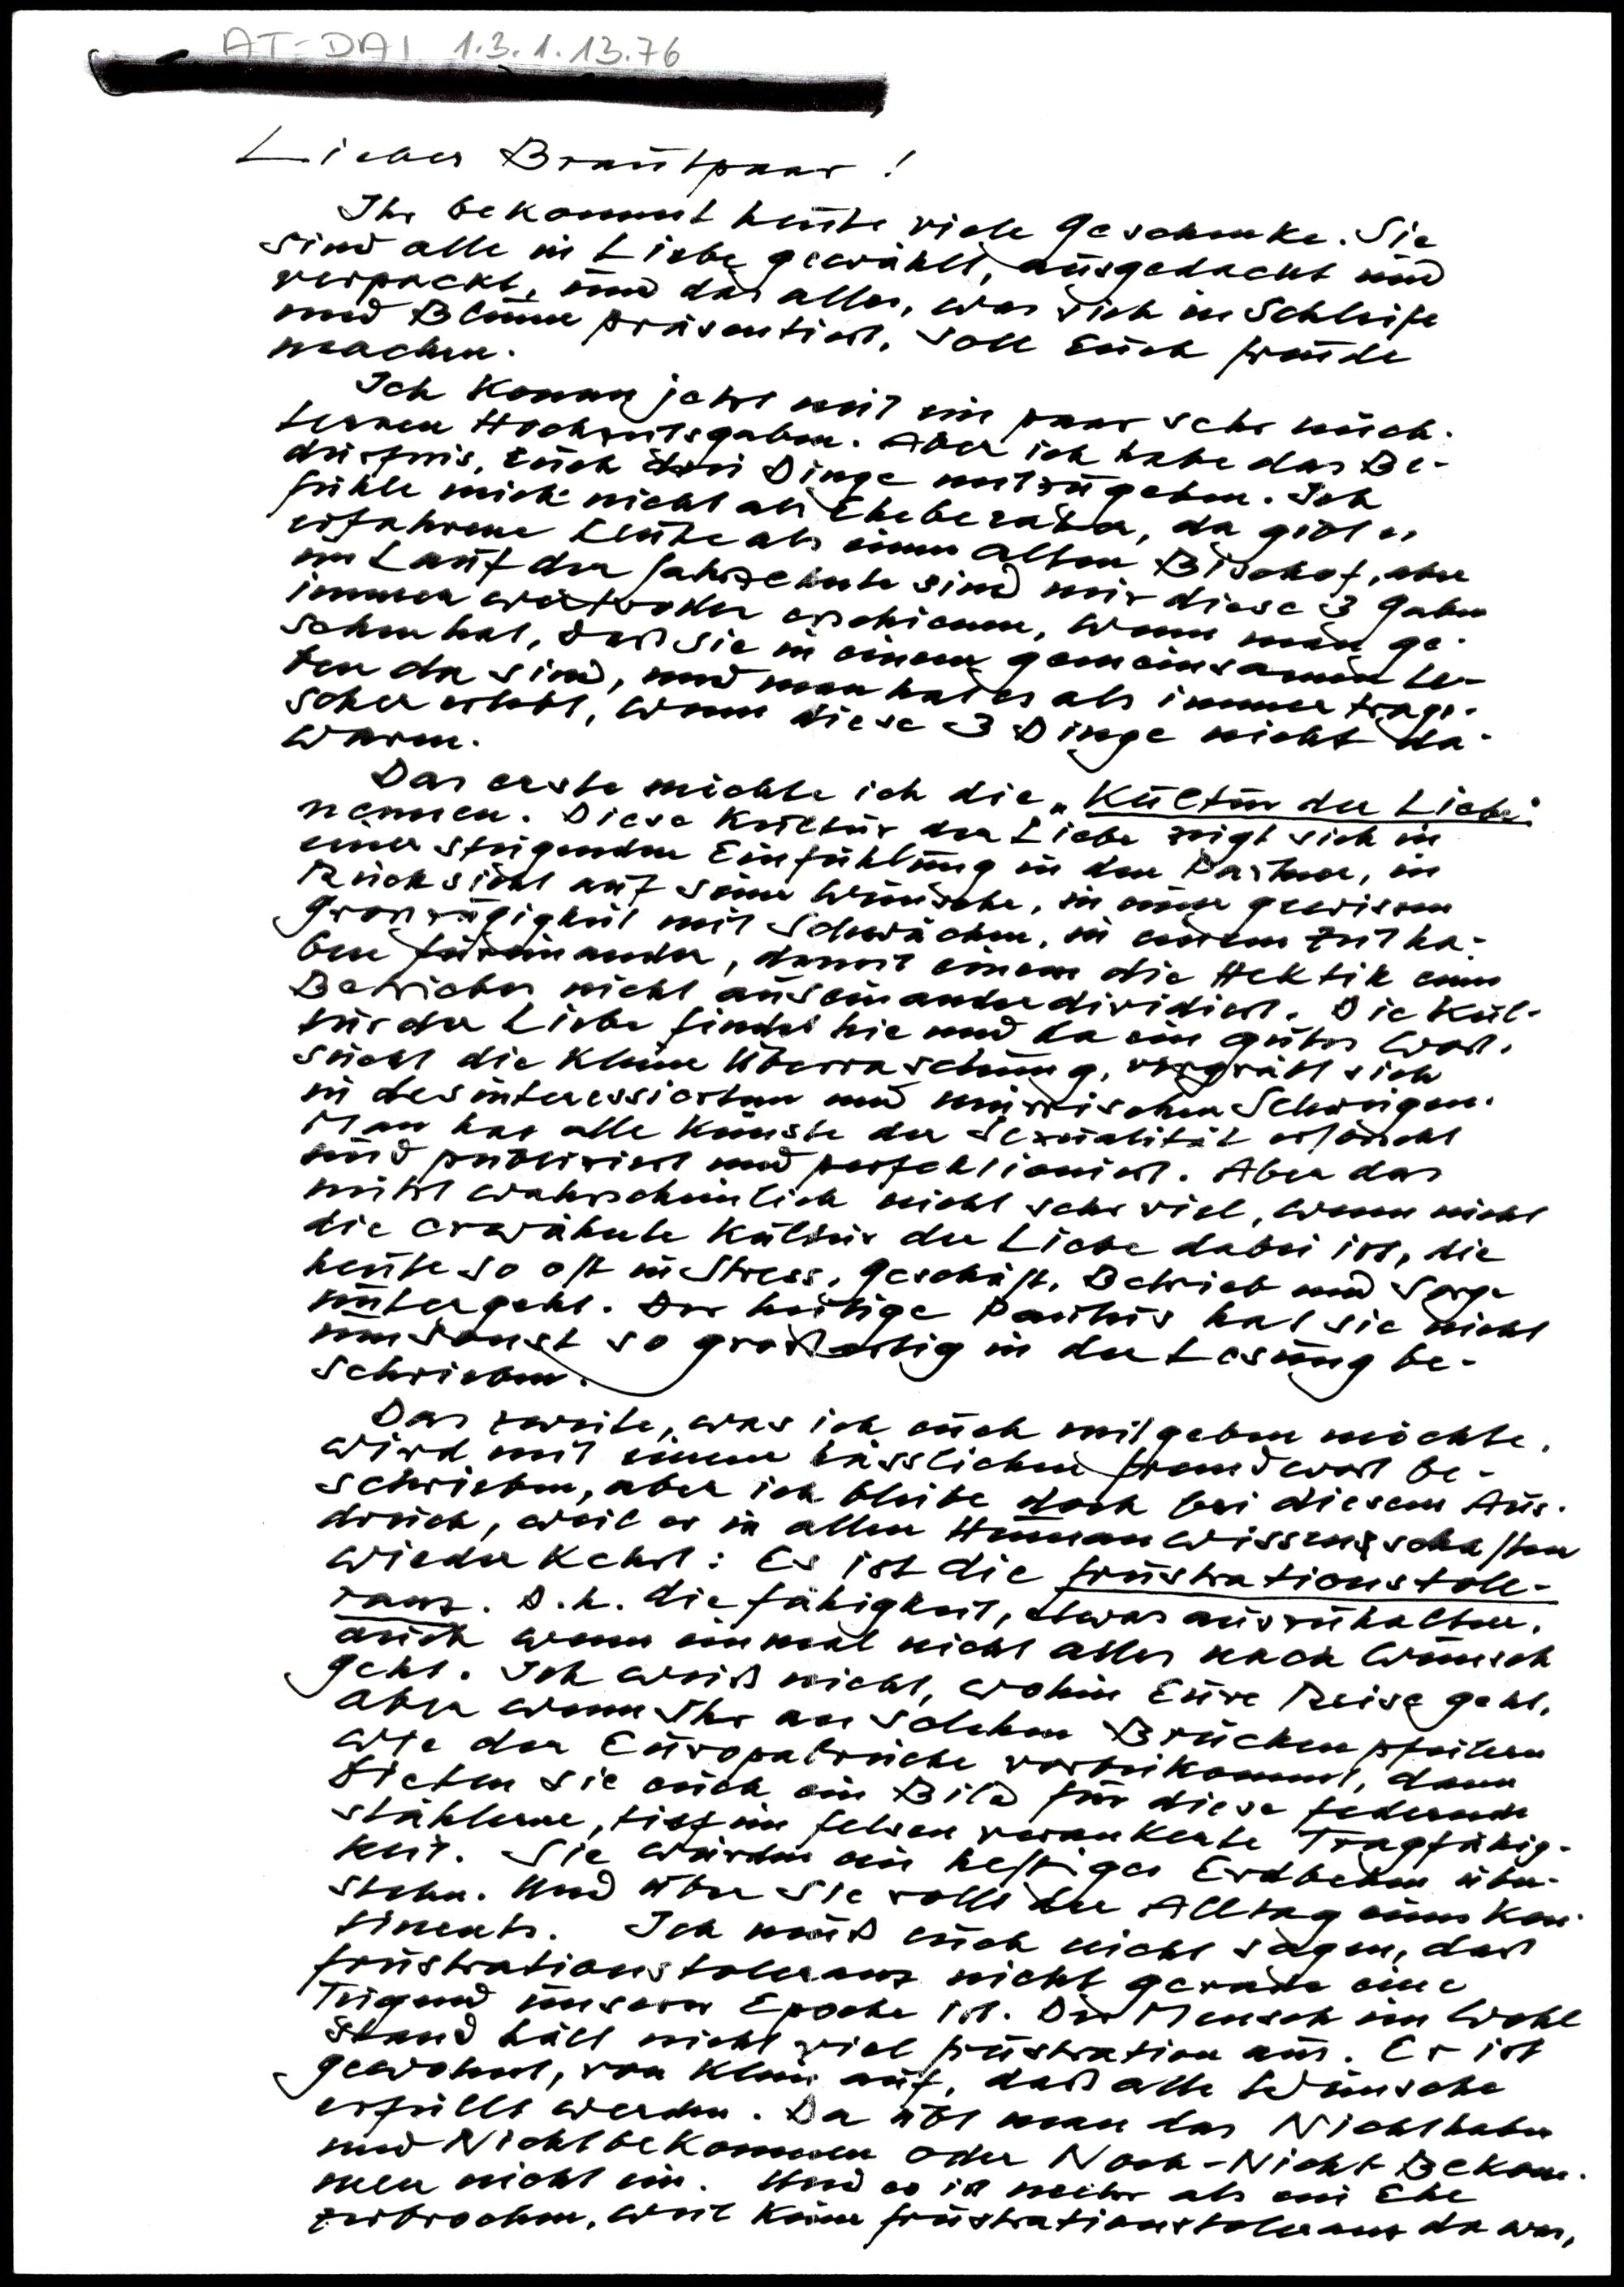 AT-DAI 1.3.1.13.76
Liebes Brautpaar!
Ihr bekommt heute viele Geschenke. Sie
sind alle in Liebe gewählt, ausgedacht und
verpackt, und das alles, was sich in Schleife
und Blume präsentiert, soll Euch Freude
machen.
Ich komm jetzt mit ein paar sehr nüch-
ternen Hochzeitsgaben. Aber ich habe das Be-
dürfnis, Euch drei Dinge mitzugeben. Ich
fühle mich nicht als Eheberater, da gibt es
erfahrene Leute als einen alten Bischof, aber
im Lauf der Jahrzehnte sind mir diese 3 Gaben
immer wertvoller erschienen, wenn man ge-
sehen hat, daß sie in einem gemeinsamen Le-
ben da sind, und man hat es als immer tragi-
scher erlebt, wenn diese 3 Dinge nicht da
waren.
Das erste möchte ich die „Kultur der Liebe"
nennen. Diese Kultur der Liebe zeigt sich in
einer steigenden Einfühlung in den Partner, in
Rücksicht auf seine Wünsche, in einer gewissen
Großzügigkeit mit Schwächen, in einem Zeit ha-
ben füreinander, damit einem die Hektik eines
Betriebes nicht auseinanderdividiert. Die Kul-
tur der Liebe findet hie und da ein gutes Wort,
sucht die kleine Überraschung, vergräbt sich
in desinteressiertem und mürrischen Schweigen.
Man hat alle Künste der Sexualität erforscht
und publiziert und perfektioniert. Aber das
nützt wahrscheinlich nicht sehr viel, wenn nicht
die erwähnte Kultur der Liebe dabei ist, die
heute so oft in Stress, Geschäft, Betrieb und Sorge
untergeht. Der heilige Paulus hat sie nicht
umsonst so großartig in der Lesung be-
schrieben.
Das zweite, was ich euch mitgeben möchte,
wird mit einem hässlichen Fremdwort be-
schrieben, aber ich bleibe doch bei diesem Aus-
druck, weil er in allen Humanwissenschaften
wiederkehrt: Es ist die Frustrationstole-
ranz. D.h. die Fähigkeit, etwas auszuhalten,
auch wenn einmal nicht alles nach Wunsch
geht. Ich weiß nicht, wohin Eure Reise geht,
aber wenn Ihr an solchen Brückenpfeilern
wie der Europabrücke vorbeikommt, dann
bieten sie euch ein Bild für diese federnde
stählerne, tief im Felsen verankerte Tragfähig-
keit. Sie würden ein heftiges Erdbeben über-
stehn. Und über sie rollt der Alltag eines Kon-
tinents. Ich muß euch nicht sagen, daß
Frustrationstoleranz nicht gerade eine
Tugend unserer Epoche ist. Der Mensch im Wohl
stand hält nicht viel Frustration aus. Er ist
gewohnt, von klein auf, daß alle Wünsche
erfüllt werden. Da übt man das Nichthaben
und Nichtbekommen oder Noch-Nicht-Bekom-
men nicht ein. Und es ist mehr als eine Ehe
zerbrochen, weil keine Frustrationstoleranz da war,